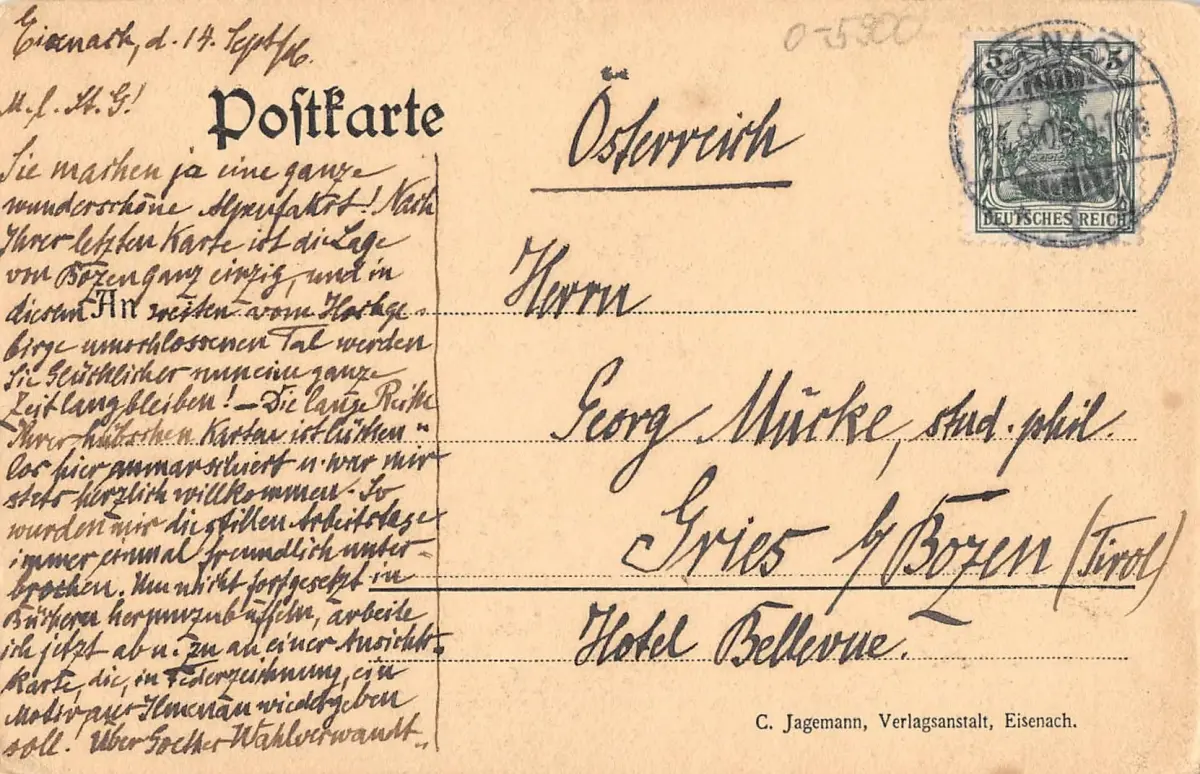 Eisenach, d. 14. Sept/06.
M. l. St. G!
Sie machen ja eine ganze
wunderschöne Alpenfahrt! Nach
Ihrer letzten Karte ist die Lage
von Bozen ganz einzig, und in
diesem weiten vom Hochge-
birge umschlossenen Tal werden
Sie Glücklicher nun eine ganze
Zeit lang bleiben! – Die lange Reihe
Ihrer hübschen Karten ist lücken-
los hier anmarschiert u. war mir
stets herzlich willkommen. So
wurden mir die stillen Arbeitstage
immer einmal freundlich unter-
brochen. Um nicht fortgesetzt in
Büchern herumzubüffeln, arbeite
ich jetzt ab u. zu an einer Ansichts-
karte, die, in Federzeichnung, ein
Motiv aus Ilmenau wiedergeben
soll! Über Goethes Wahlverwandt-
Postkarte
An
0-5900
Österreich
Herrn
Georg Mücke, stud. phil.
Gries b/ Bozen (Tirol)
Hotel Bellevue.
5 5
EISENACH
DEUTSCHES REICH
C. Jagemann, Verlagsanstalt, Eisenach.